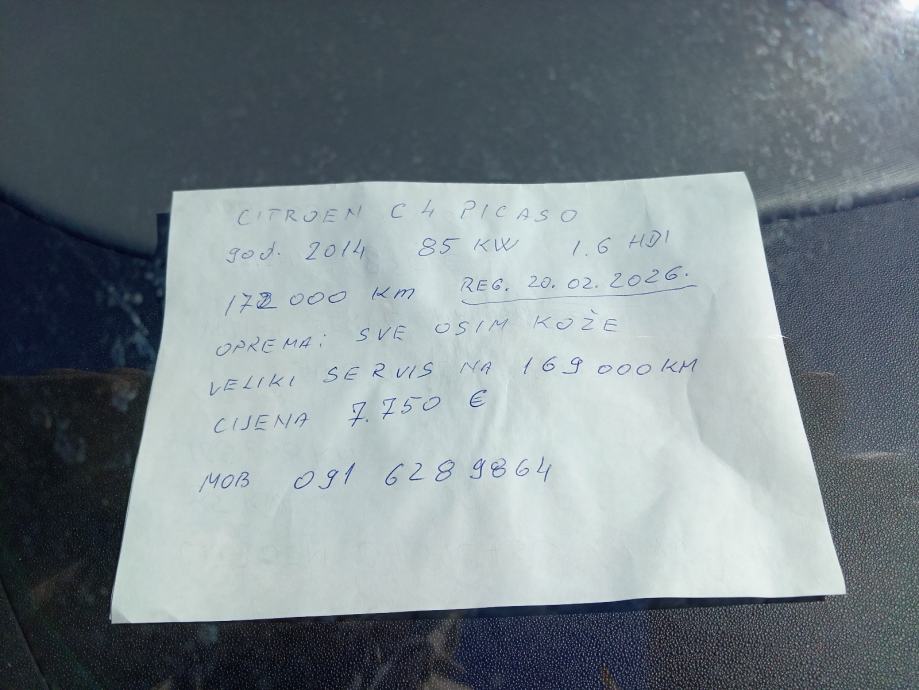 CITROEN C4 PICASO
god. 2014 85 KW 1.6 HDI
172 000 Km REG. 20.02.2026.
OPREMA: SVE OSIM KOŽE
VELIKI SERVIS NA 169 000 KM
CIJENA 7.750 €
MOB 091 6289864